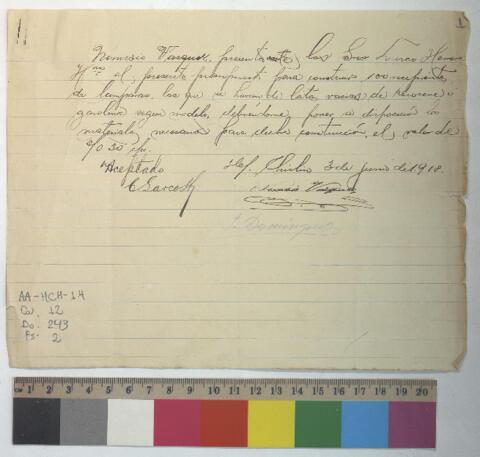 1
Nemesio Vasquez, presenta ante los Sres
Hnos el presente presupuesto para construir 100 recipientes
de lamparas, los que se haran de latas vacias de kerosene ó
gasolina segun modelo, debiendome poner a disposicion los
materiales necesarios para dicha construccion, el valor de
30
Aceptado
Chiclin 3 de junio de 1918.
Nemesio Vasquez
Dominguez
AA-HCH-14
Ca. 12
Do. 243
Fs- 2
cm 1 2 3 4 5 6 7 8 9 10 11 12 13 14 15 16 17 18 19 20